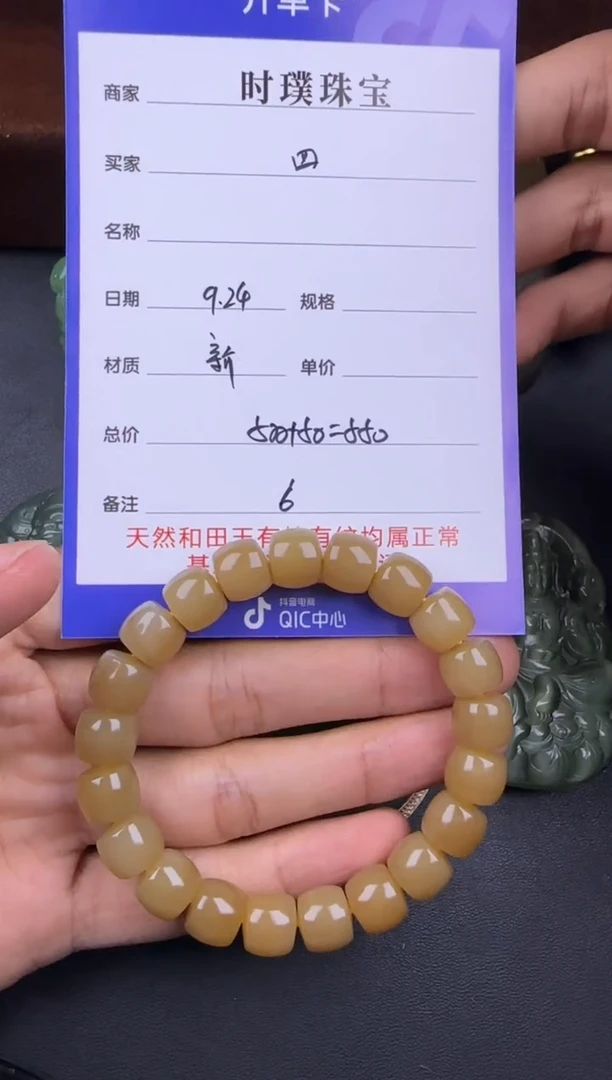 开单卡
商家 时璞珠宝
买家 四
名称
日期 9.24 规格
材质 新 单价
总价 500+50=550
备注 6
天然和田玉有 有纹均属正常
抖音电商
QIC中心